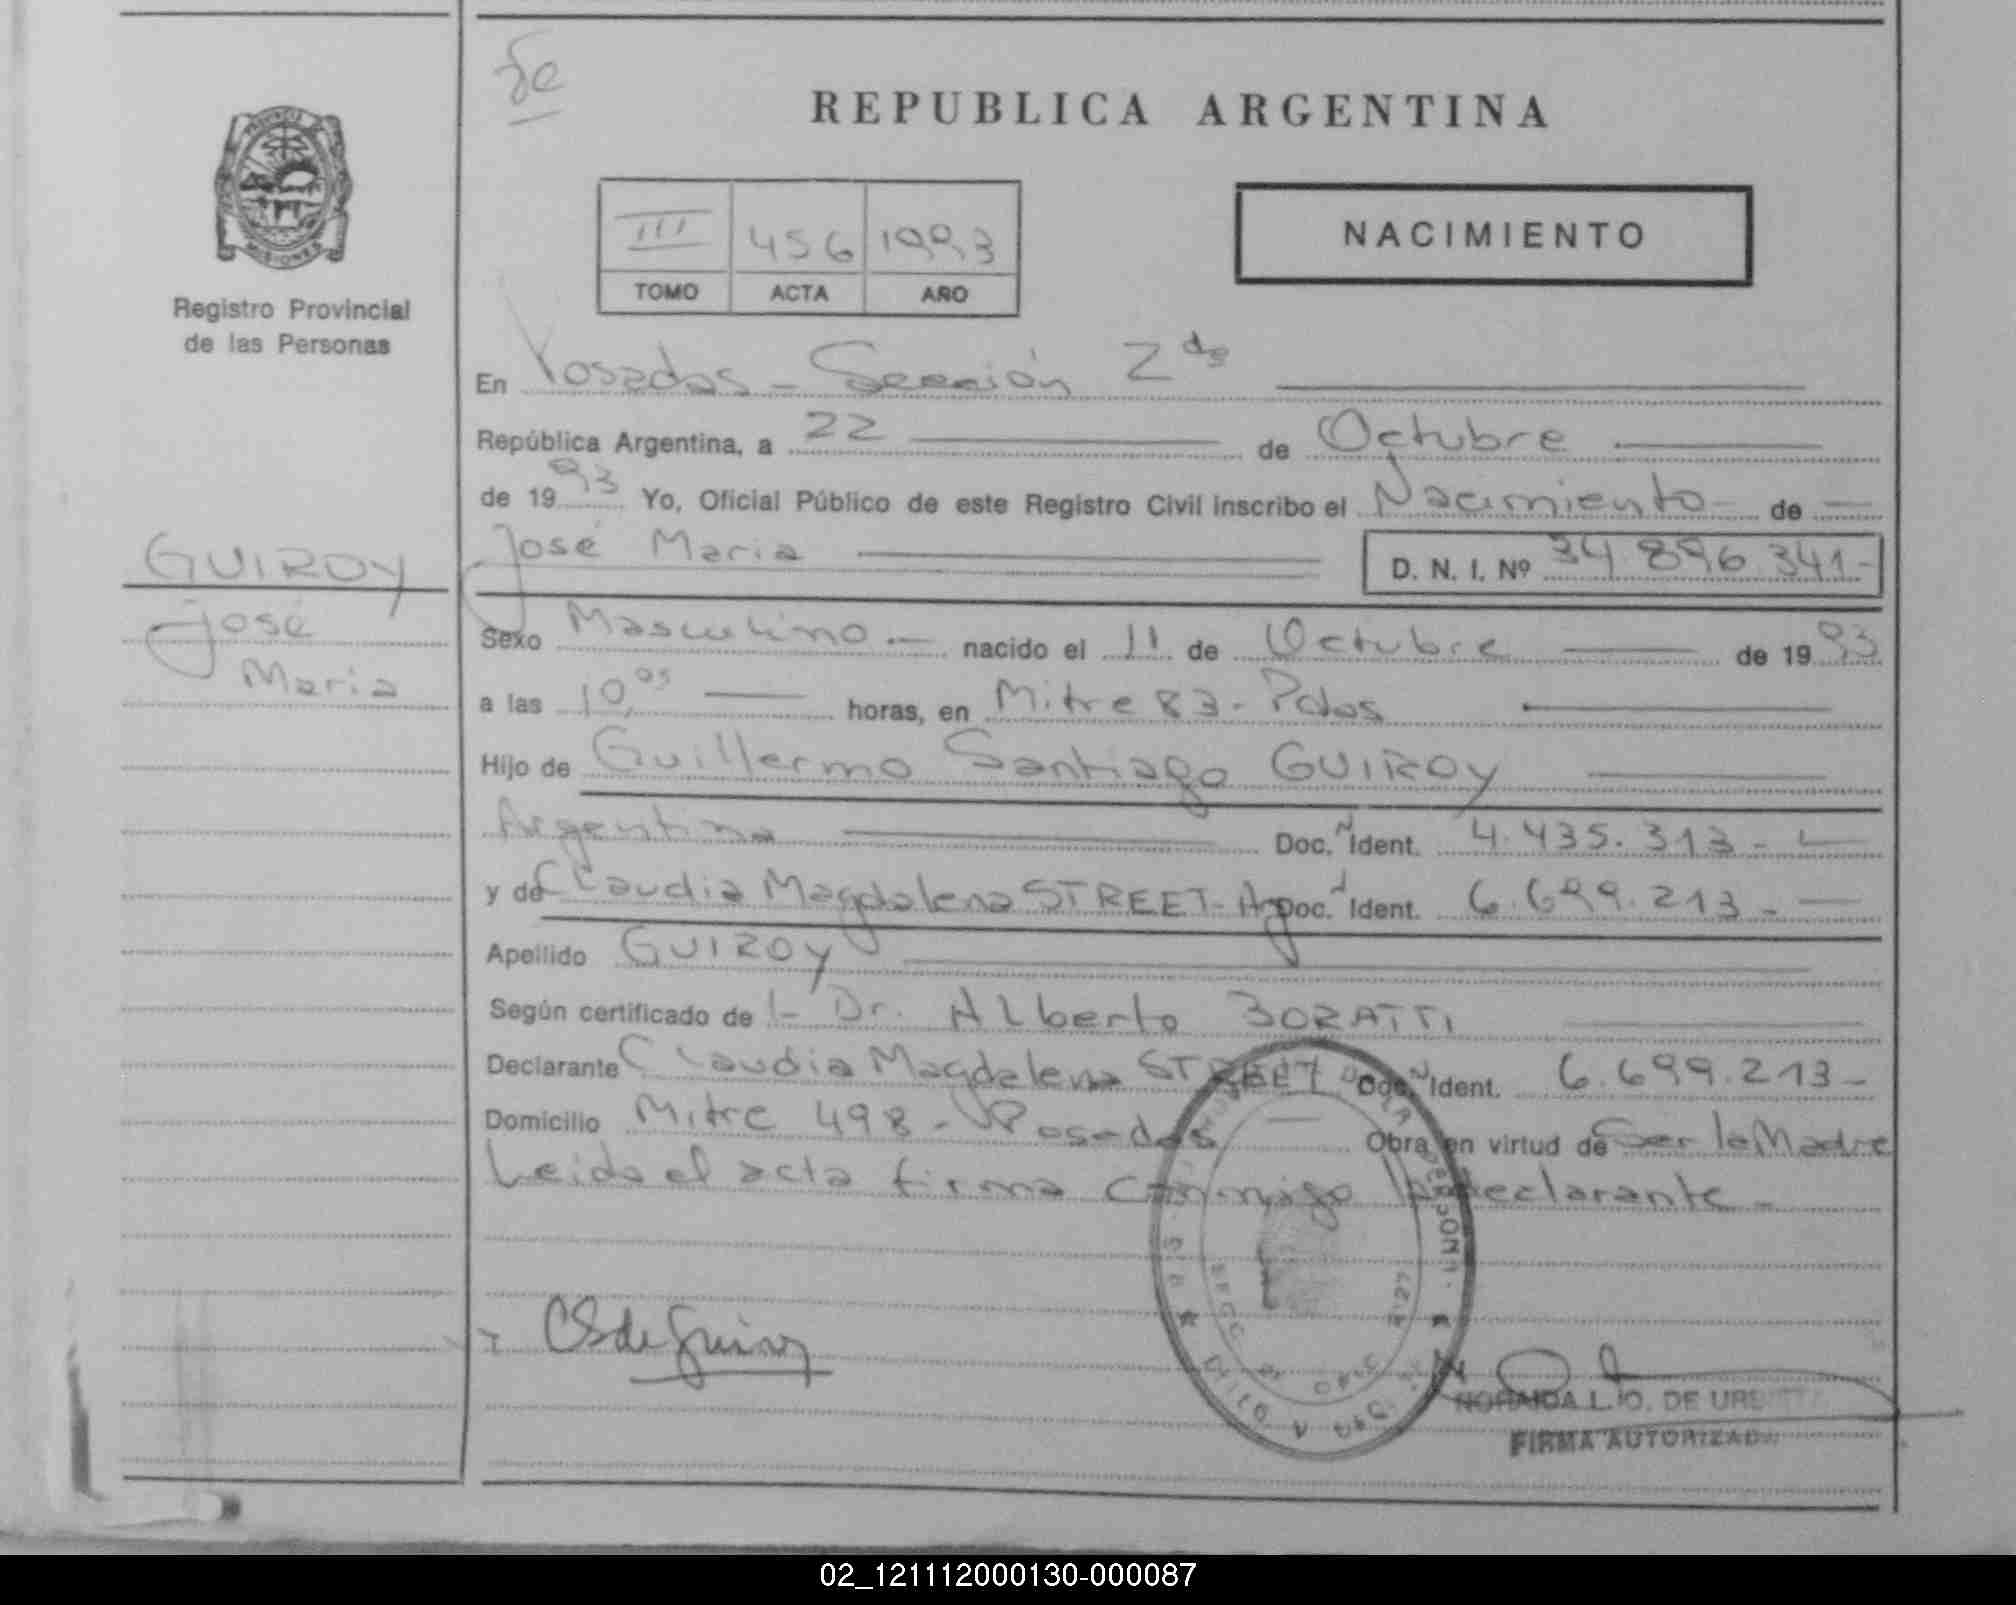 REPUBLICA ARGENTINA
III 456 1993
TOMO ACTA AÑO
NACIMIENTO
MISIONES
Registro Provincial
de las Personas
GUIROY
José
Maria
En Posadas - Sección 2da
República Argentina, a 22 de Octubre
de 1993 Yo, Oficial Público de este Registro Civil inscribo el Nacimiento de
José Maria D. N. I. Nº 34.896.341-
Sexo Masculino.- nacido el 11 de Octubre de 1993
a las 10,05 horas, en Mitre 83 - Pdas
Hijo de Guillermo Santiago GUIROY
Argentina Doc. Ident. 4.435.313-
y de Claudia Magdalena STREET - Arg Doc. Ident. 6.699.213-
Apellido GUIROY
Según certificado de l- Dr. ALberto BORATTI
Declarante Claudia Magdalena STREET Doc. Ident. 6.699.213-
Domicilio Mitre 498 - Posadas Obra en virtud de Ser la Madre
Leida el acta firma conmigo la declarante -
CS de Guiroy
L. O. DE
FIRMA AUTORIZADA
02_121112000130-000087